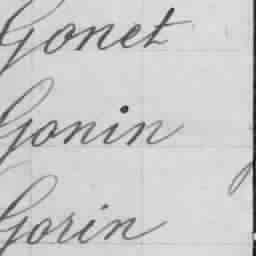 Gonet
Gonin
Gorin